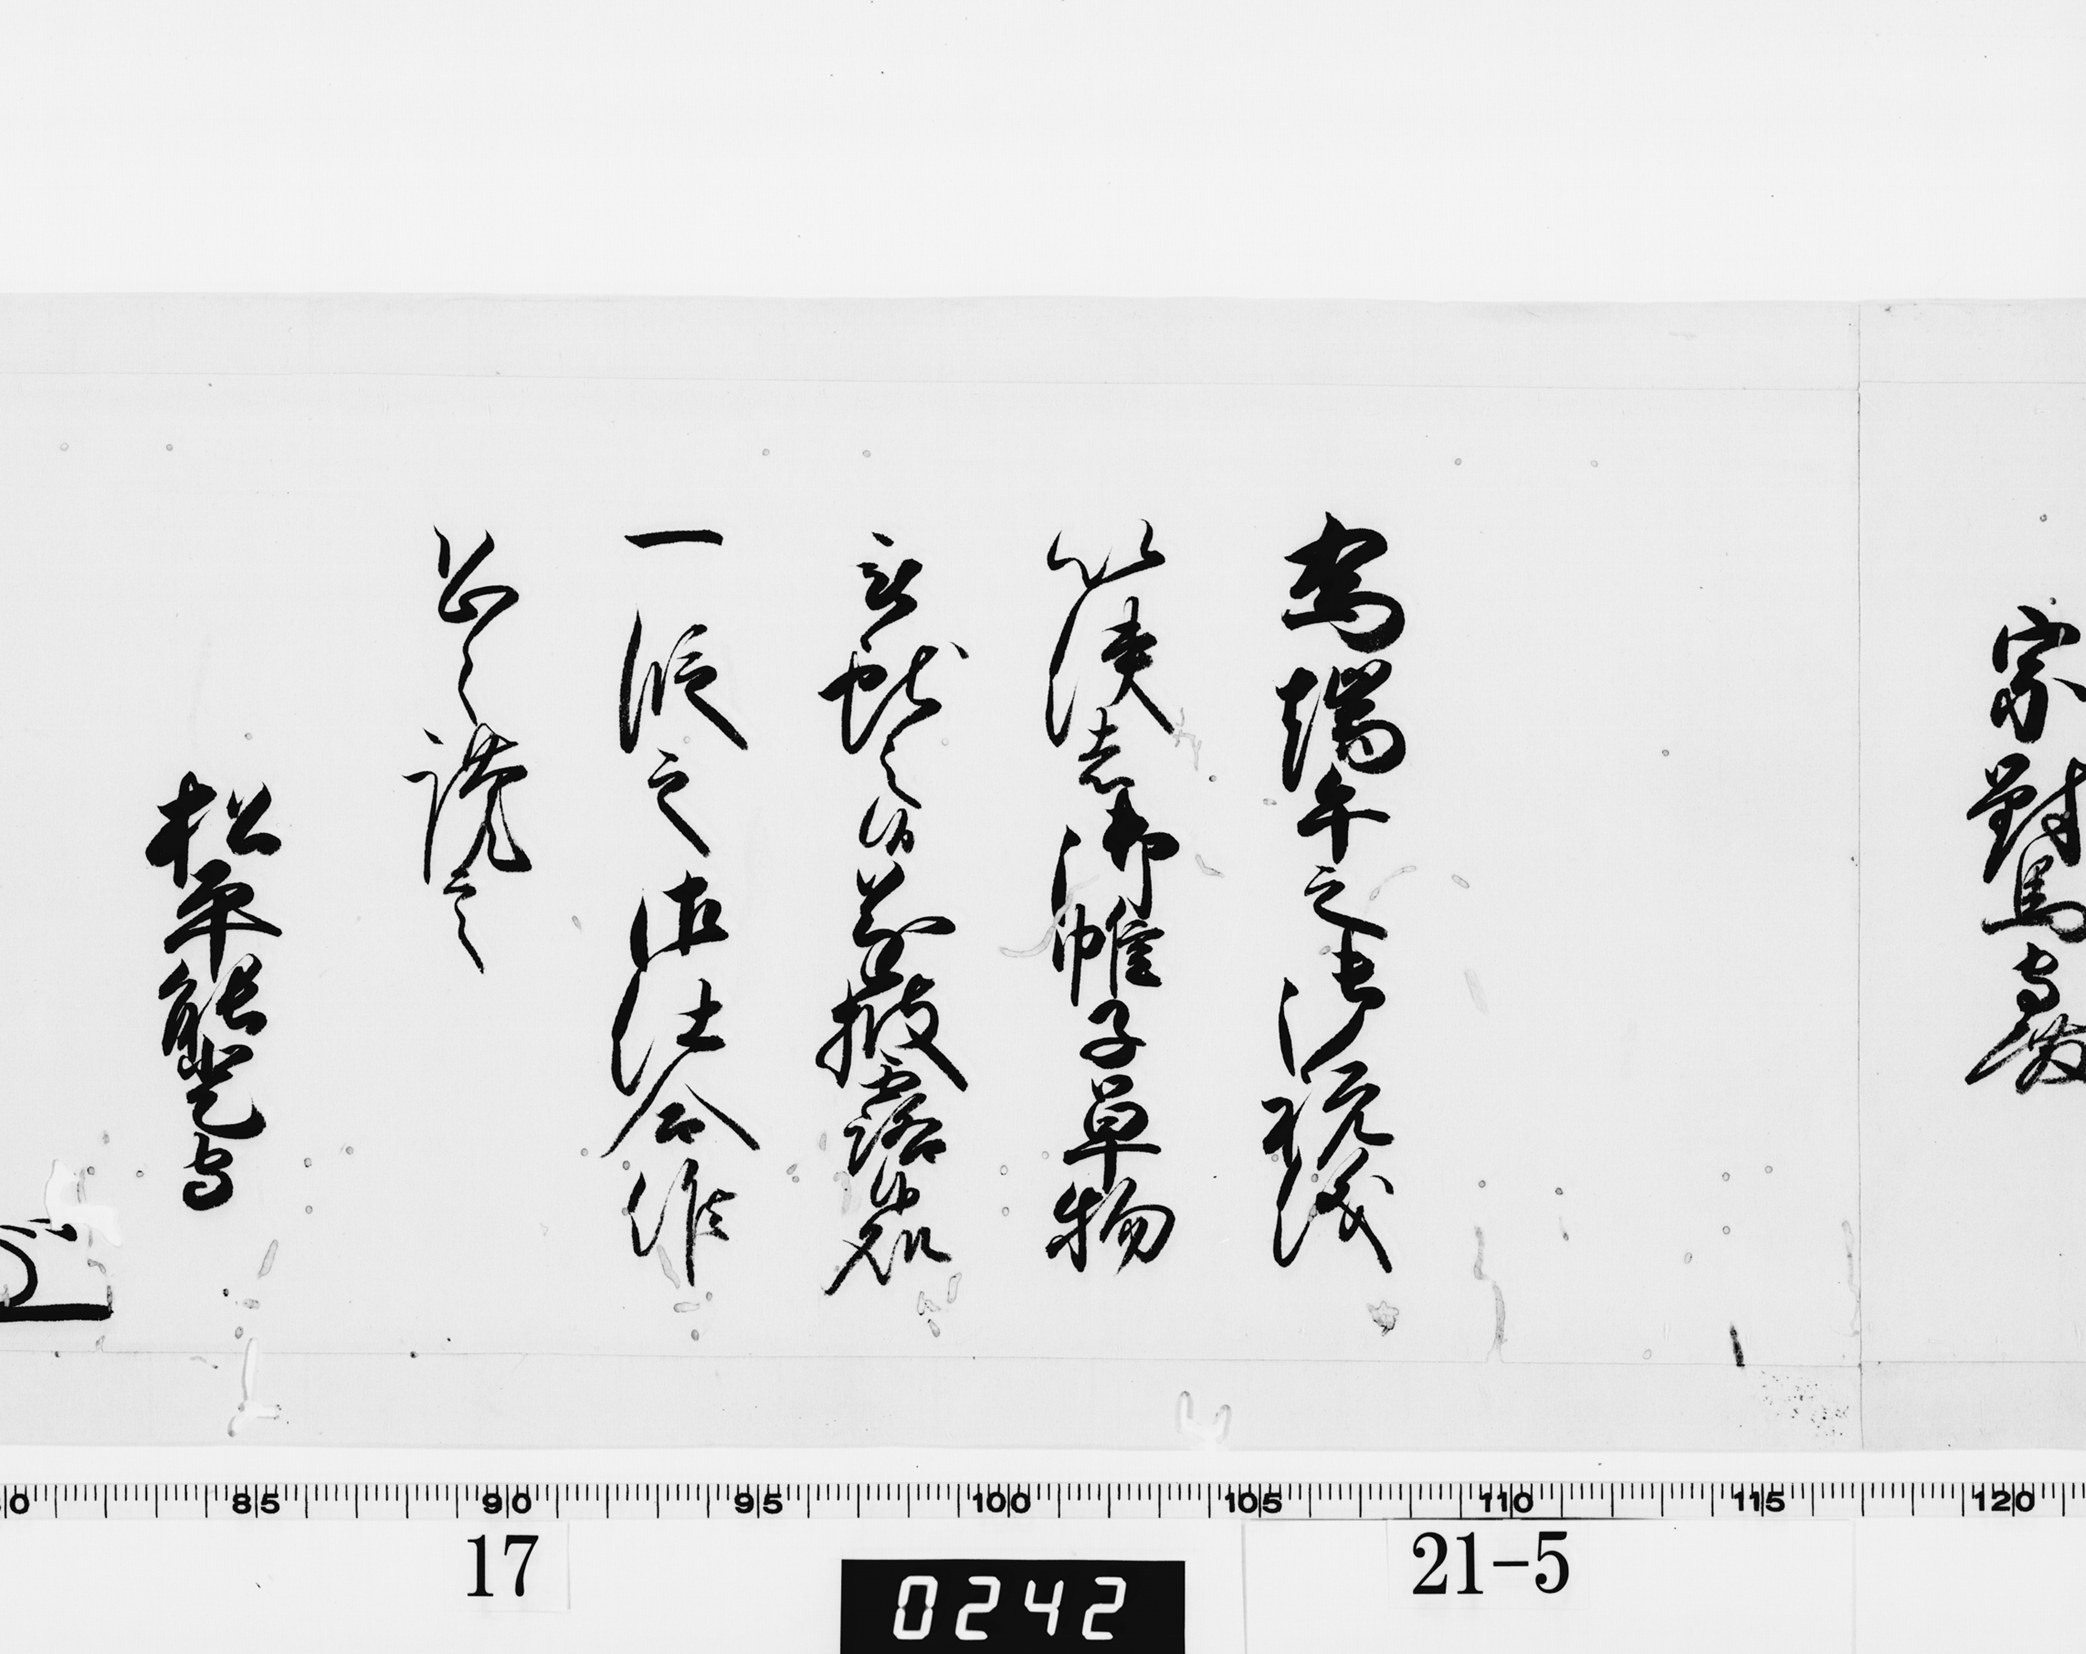 宗對馬守殿
為端午之御祝儀
以使者御帷子単物
被献之候遂披露候処
一段之御仕合候
恐々謹言
松平能登守
80 85 90 95 100 105 110 115 120
17
0242
21-5